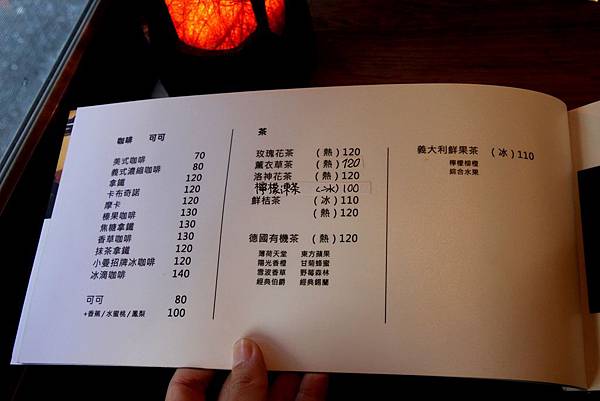 咖啡 可可
美式咖啡 70
義式濃縮咖啡 80
拿鐵 120
卡布奇諾 120
摩卡 120
榛果咖啡 130
焦糖拿鐵 130
香草咖啡 130
抹茶拿鐵 120
小曼招牌冰咖啡 120
冰滴咖啡 140
可可 80
+香蕉/水蜜桃/鳳梨 100
茶
玫瑰花茶 (熱)120
薰衣草茶 (熱)120
洛神花茶 (熱)120
檸檬凍茶 (冰)100
鮮桔茶 (冰)110
(熱)120
德國有機茶 (熱)120
薄荷天堂 東方蘋果
陽光香橙 甘菊蜂蜜
雪波香草 野莓森林
經典伯爵 經典錫蘭
義大利鮮果茶 (冰)110
檸檬柳橙
綜合水果